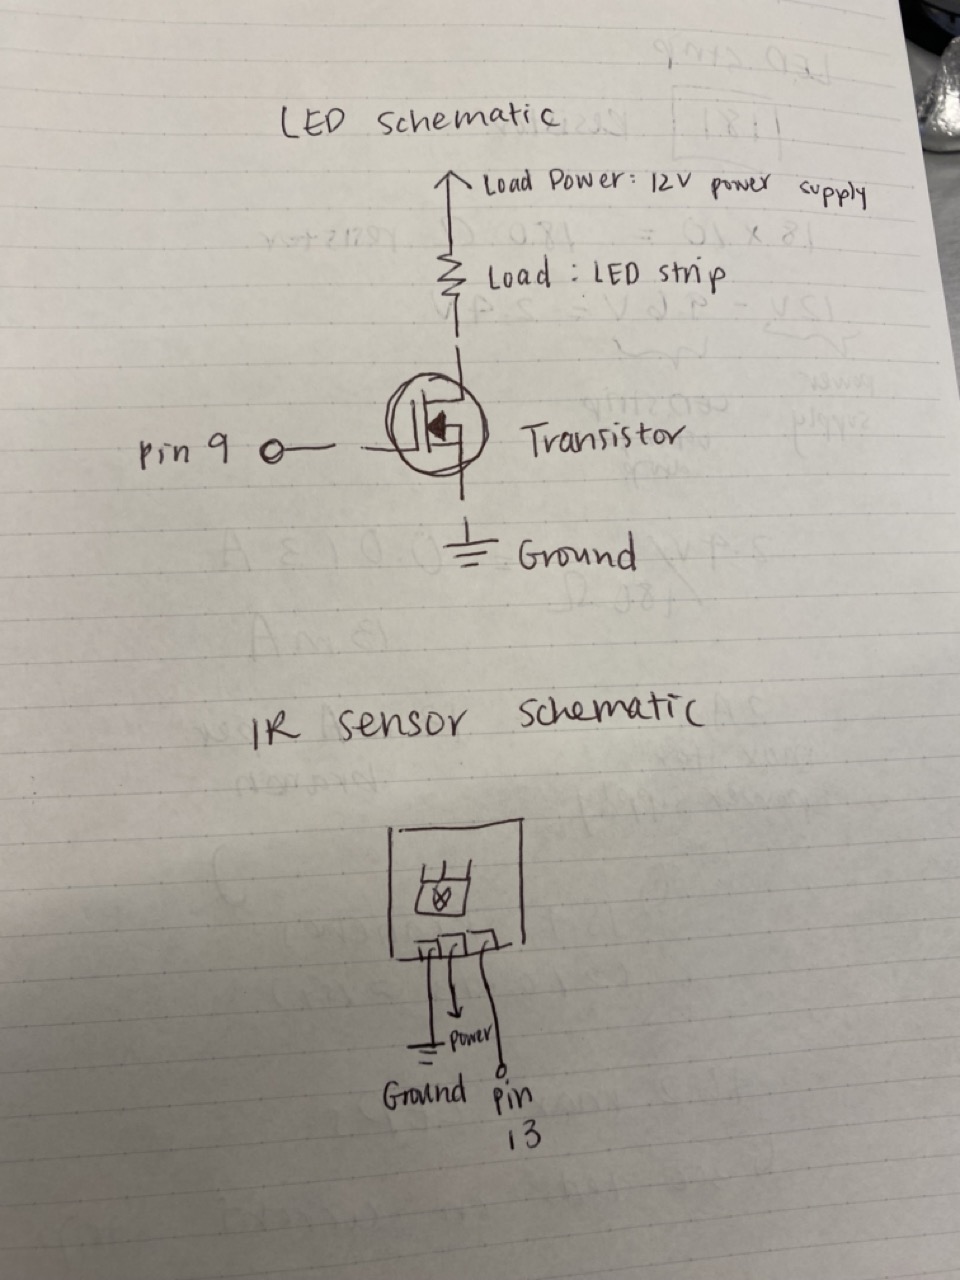 LED schematic
Load Power: 12V power supply
Load : LED strip
Pin 9
Transistor
Ground
IR sensor schematic
Power
Ground
Pin
13